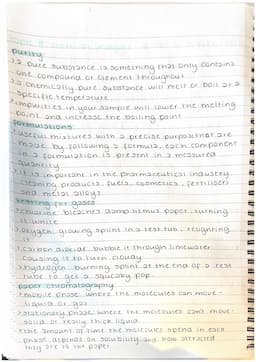 purity
a pure substance is something that only contains
one compound or element throughout
a chemically pure substance will melt or boil at a
specific temperature
impurities in your sample will lower the melting
point and increase the boiling point
formulations
useful mixtures with a precise purpose that are
made by following a formula. each component
in a formulation is present in a measured
quantity
it is important in the pharmaceutical industry,
cleaning products, fuels, cosmetics, fertilisers
and metal alloys
testing for gases
chlorine: bleaches damp litmus paper, turning
it white
oxygen: glowing splint in a test tub, relighting
it
carbon dioxide: bubble it through limewater
causing it to turn cloudy
hydrogen: burning splint at the end of a test
tube to get a squeaky pop
paper chromatography
mobile phase: where the molecules can move -
liquid or gas
stationary phase: where the molecules can't move -
solid or really thick liquid
the amount of time the molecules spend in each
phase depends on solubility and how attracted
they are to the paper